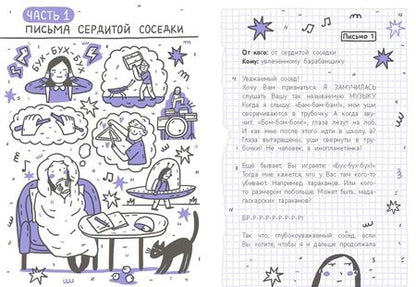 ЧАСТЬ 1
ПИСЬМА СЕРДИТОЙ СОСЕДКИ
БУХ-БУХ-БУХ
Письмо 1
От кого: от сердитой соседки
Кому: увлечённому барабанщику
Уважаемый сосед!
Хочу Вам признаться. Я ЗАМУЧИЛАСЬ
слушать Вашу так называемую МУЗЫКУ.
Когда я слышу: «Бам-бам-бам!», мои уши
сворачиваются в трубочку. А когда зву-
чит: «Бом-бом-бом!», глаза лезут на лоб.
И как мне после этого идти в школу, а?
Глаза вытаращены, уши свернуты в труб-
бочки! Не человек, а инопланетянка!
Ещё бывает, Вы играете: «Бух-бух-бух!»
Тогда мне кажется, что у Вас там кого-то
убивают. Например, тараканов. Или кого-
то размером побольше. Может быть, мада-
гаскарских тараканов!
БР-Р-Р-Р-Р-Р-Р-Р!
Так что, глубокоуважаемый сосед, если
Вы хотите, чтобы я и дальше продолжала